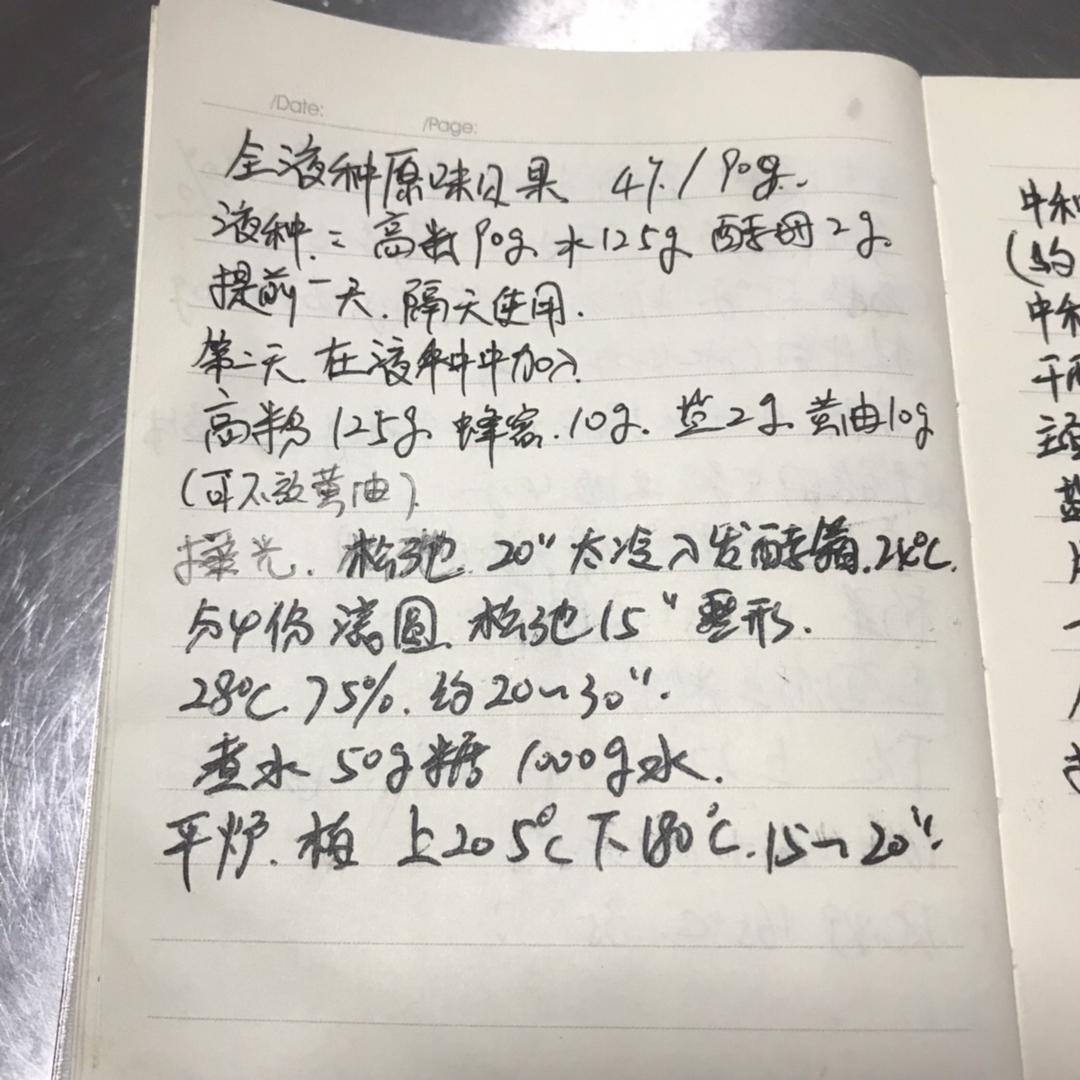 /Date:
/Page:
全液种原味贝果 4个/90g.
液种：高粉90g 水125g 酵母2g
提前一天.隔天使用.
第二天.在液种中加入
高粉125g 蜂蜜.10g. 盐2g 黄油10g
(可不放黄油).
揉光. 松弛 20" 太冷入发酵箱.28℃.
分4份 滚圆.松弛15" 整形.
28℃.75%.约20~30".
煮水 50g糖 1000g水.
平炉. 柏 上205℃下180℃.15~20".
中种
(约
中种
干酵
主面
盐